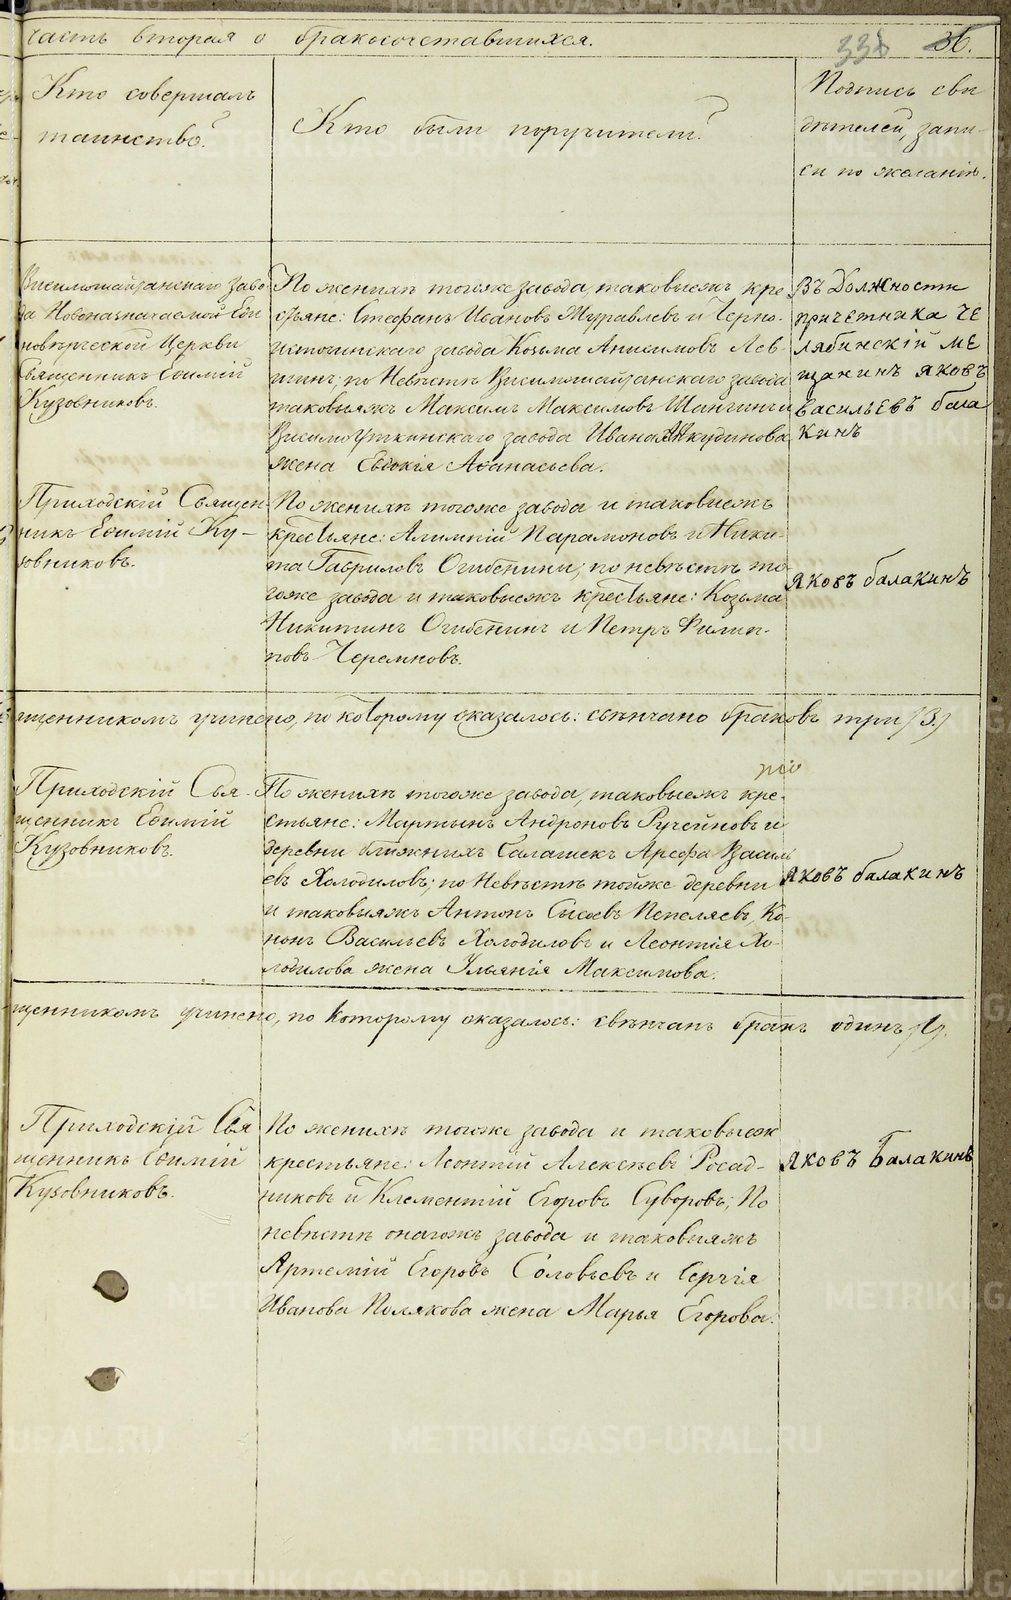 часть вторая о бракосочетавшихся.
338 36.
Кто совершалъ
таинство?
Кто были поручители?
Подпись сви
дѣтелей, запи-
си по желанію.
Висимошайтанскаго заво
да Новоназначаемой Еди
новѣрческой Церкви
Священникъ Евѳимій
Кузовниковъ.
По женихѣ тогоже завода, таковыежъ кре
стьяне: Стефанъ Ивановъ Журавлевъ и Черно-
источинскаго завода Козьма Анисимовъ Лев-
шинъ; по Невѣстѣ Висимошайтанскаго завода
таковыяжъ Максимъ Максимовъ Шангинъ и
Висимоуткинскаго завода Ивана Анкудинова
жена Евдокія Аѳанасьева.
Въ Должности
причетника ЧЕ
лябинскій МЕ
щанинъ яковъ
васильЕвъ бала
кинъ
Приходскій Священ
никъ Евѳимій Ку-
зовниковъ.
По женихѣ тогоже завода и таковыежъ
крестьяне: Алимпій Парамоновъ и Ники-
та Гавриловъ Огибенины; по невѣстѣ то-
гоже завода и таковыежъ крестьяне: Козьма
Никитинъ Огибенинъ и Петръ Филип-
повъ Черемновъ.
яковъ балакинъ
щенникомъ учинено, по которому оказалось: свѣнчано браковъ три /3./
Приходскій Свя-
щенникъ Евѳимій
Кузовниковъ.
По женихѣ тогоже завода, таковыежъ кре-
стьяне: Мартынъ Андроновъ Ручейновъ и
деревни ближнихъ Галашекъ Ареѳа Василь
евъ Холодиловъ; по Невѣстѣ тойже деревни
и таковыяжъ Антонъ Сысоевъ Пепеляевъ, Ко-
нонъ Васильевъ Холодиловъ и Леонтія Хо-
лодилова жена Ульянія Максимова.
яковъ балакинъ
щенникомъ учинено, по которому оказалось: свѣнчанъ бракъ одинъ /1/.
Приходскій Свя
щенникъ Евѳимій
Кузовниковъ.
По женихѣ тогоже завода и таковыеж
крестьяне: Леонтій Алексѣевъ Росад-
никовъ и Клементій Егоровъ Суворовъ; По
невѣстѣ онагожъ завода и таковыяжъ
Артемій Егоровъ Соловьевъ и Сергія
Иванова Полякова жена Марья Егорова.
яковъ Балакинъ
METRIKI.GASO-URAL.RU